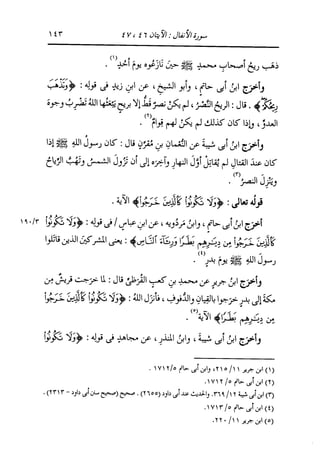 سورة الأنفال : الآيتان ٤٦ ، ٤٧ ١٤٣
ذهب ريحُ أصحابِ محمدٍ ﷺ حين نازعوه يومَ أُحدٍ(١).
وأخرَج ابنُ أبي حاتمٍ ، وأبو الشيخِ ، عن ابنِ زيدٍ في قولِه : ﴿وَتَذْهَبَ
رِيحُكُمْ﴾ . قال : الريحُ النصْرُ ، لم يكنْ نصرٌ قطُّ إلا بريحٍ يَبْعَثُها اللهُ تَضْرِبُ وجوهَ
العدوِّ ، وإذا كان كذلك لم يكنْ لهم قِوامٌ(٢).
وأخرَج ابنُ أبي شيبةَ عن النُّعمانِ بنِ مُقَرِّنٍ قال : كان رسولُ اللهِ ﷺ إذا
كان عندَ القتالِ لم يُقاتِلْ أولَ النهارِ وأخَّرَه إلى أن تَزولَ الشمسُ وتَهُبَّ الرياحُ
ويَنزِلَ النصرُ(٣).
قولُه تعالى : ﴿وَلَا تَكُونُوا كَالَّذِينَ خَرَجُوا﴾ الآية .
أخرَج ابنُ أبي حاتمٍ ، وابنُ مَردُويَه ، عن ابنِ عباسٍ / في قولِه : ﴿وَلَا تَكُونُوا ١٩٠/٣
كَالَّذِينَ خَرَجُوا مِن دِيَٰرِهِم بَطَرًا وَرِئَآءَ النَّاسِ﴾ : يعني المشركين الذين قاتَلوا
رسولَ اللهِ ﷺ يومَ بدرٍ(٤).
وأخرَج ابنُ جريرٍ عن محمدِ بنِ كعبٍ القُرَظيِّ قال : لما خرَجت قريشٌ من
مكةَ إلى بدرٍ خرَجوا بالقِيانِ والدُّفوفِ ، فأنزَل اللهُ : ﴿وَلَا تَكُونُوا كَالَّذِينَ خَرَجُوا
مِن دِيَٰرِهِم بَطَرًا﴾ الآية(٥).
وأخرَج ابنُ أبي شيبةَ ، وابنُ المنذرِ ، عن مجاهدٍ في قولِه : ﴿وَلَا تَكُونُوا
(١) ابن جرير ١١/ ٢١٥، وابن أبي حاتم ٥/ ١٧١٢ .
(٢) ابن أبي حاتم ٥/ ١٧١٢.
(٣) ابن أبي شيبة ١٢/ ٣٦٩. والحديث عند أبي داود (٢٦٥٥) . صحيح (صحيح سنن أبي داود - ٢٣١٣) .
(٤) ابن أبي حاتم ٥/ ١٧١٣.
(٥) ابن جرير ١١/ ٢٢٠.